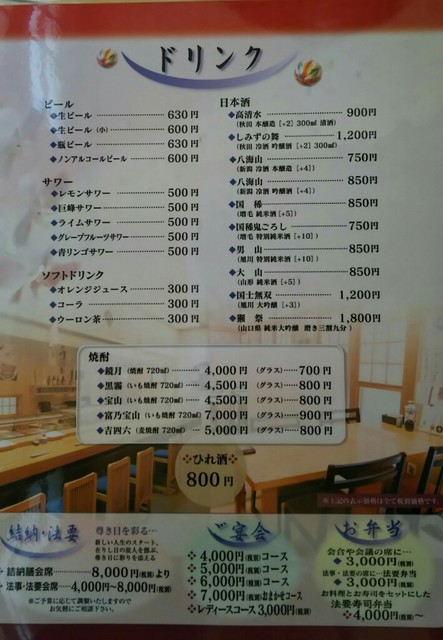 ドリンク
ビール
◆生ビール 630円
◆生ビール (小) 600円
◆瓶ビール 630円
◆ノンアルコールビール 600円
サワー
◆レモンサワー 500円
◆巨峰サワー 500円
◆ライムサワー 500円
◆グレープフルーツサワー 500円
◆青リンゴサワー 500円
ソフトドリンク
◆オレンジジュース 300円
◆コーラ 300円
◆ウーロン茶 300円
日本酒
◆高清水 900円
(秋田 本醸造 [+2] 300㎖ 清酒)
◆しみずの舞 1,200円
(秋田 冷酒 吟醸酒 [+2] 300㎖)
◆八海山 750円
(新潟 冷酒 本醸造 [+4])
◆八海山 850円
(新潟 冷酒 吟醸酒 [+4])
◆国稀 850円
(増毛 純米酒 [+5])
◆国稀鬼ごろし 750円
(増毛 特別純米酒 [+10])
◆男山 850円
(旭川 特別純米酒 [+10])
◆大山 850円
(山形 純米酒 [+5])
◆国士無双 1,200円
(旭川 大吟醸 [+3])
◆獺祭 1,800円
(山口県 純米大吟醸 磨き三割九分)
焼酎
◆鏡月 (焼酎 720㎖) 4,000円 (グラス) 700円
◆黒霧 (いも焼酎 720㎖) 4,500円 (グラス) 800円
◆宝山 (いも焼酎 720㎖) 4,500円 (グラス) 800円
◆富乃宝山 (いも焼酎 720㎖) 7,000円 (グラス) 900円
◆吉四六 (麦焼酎 720㎖) 5,000円 (グラス) 800円
ひれ酒
800円
※上記の表示価格は全て税抜価格です。
結納・法要
尊き日を彩る…
新しい人生のスタート、
在りし日の故人を偲ぶ、
尊き日に彩りを添える
結納膳会席 8,000円(税別)より
法事・法要会席 4,000円〜8,000円(税別)
※ご予算に応じて調製いたしますので
お気軽にご相談下さい。
ご宴会
4,000円(税別)コース
5,000円(税別)コース
6,000円(税別)コース
7,000円(税別)おまかせコース
レディースコース 3,000円(税別)
お弁当
会合や会議の席に…
3,000円(税別)
法事・法要の席に…法要弁当
3,000円(税別)
お料理とお寿司をセットにした
法要寿司弁当
4,000円(税別)〜